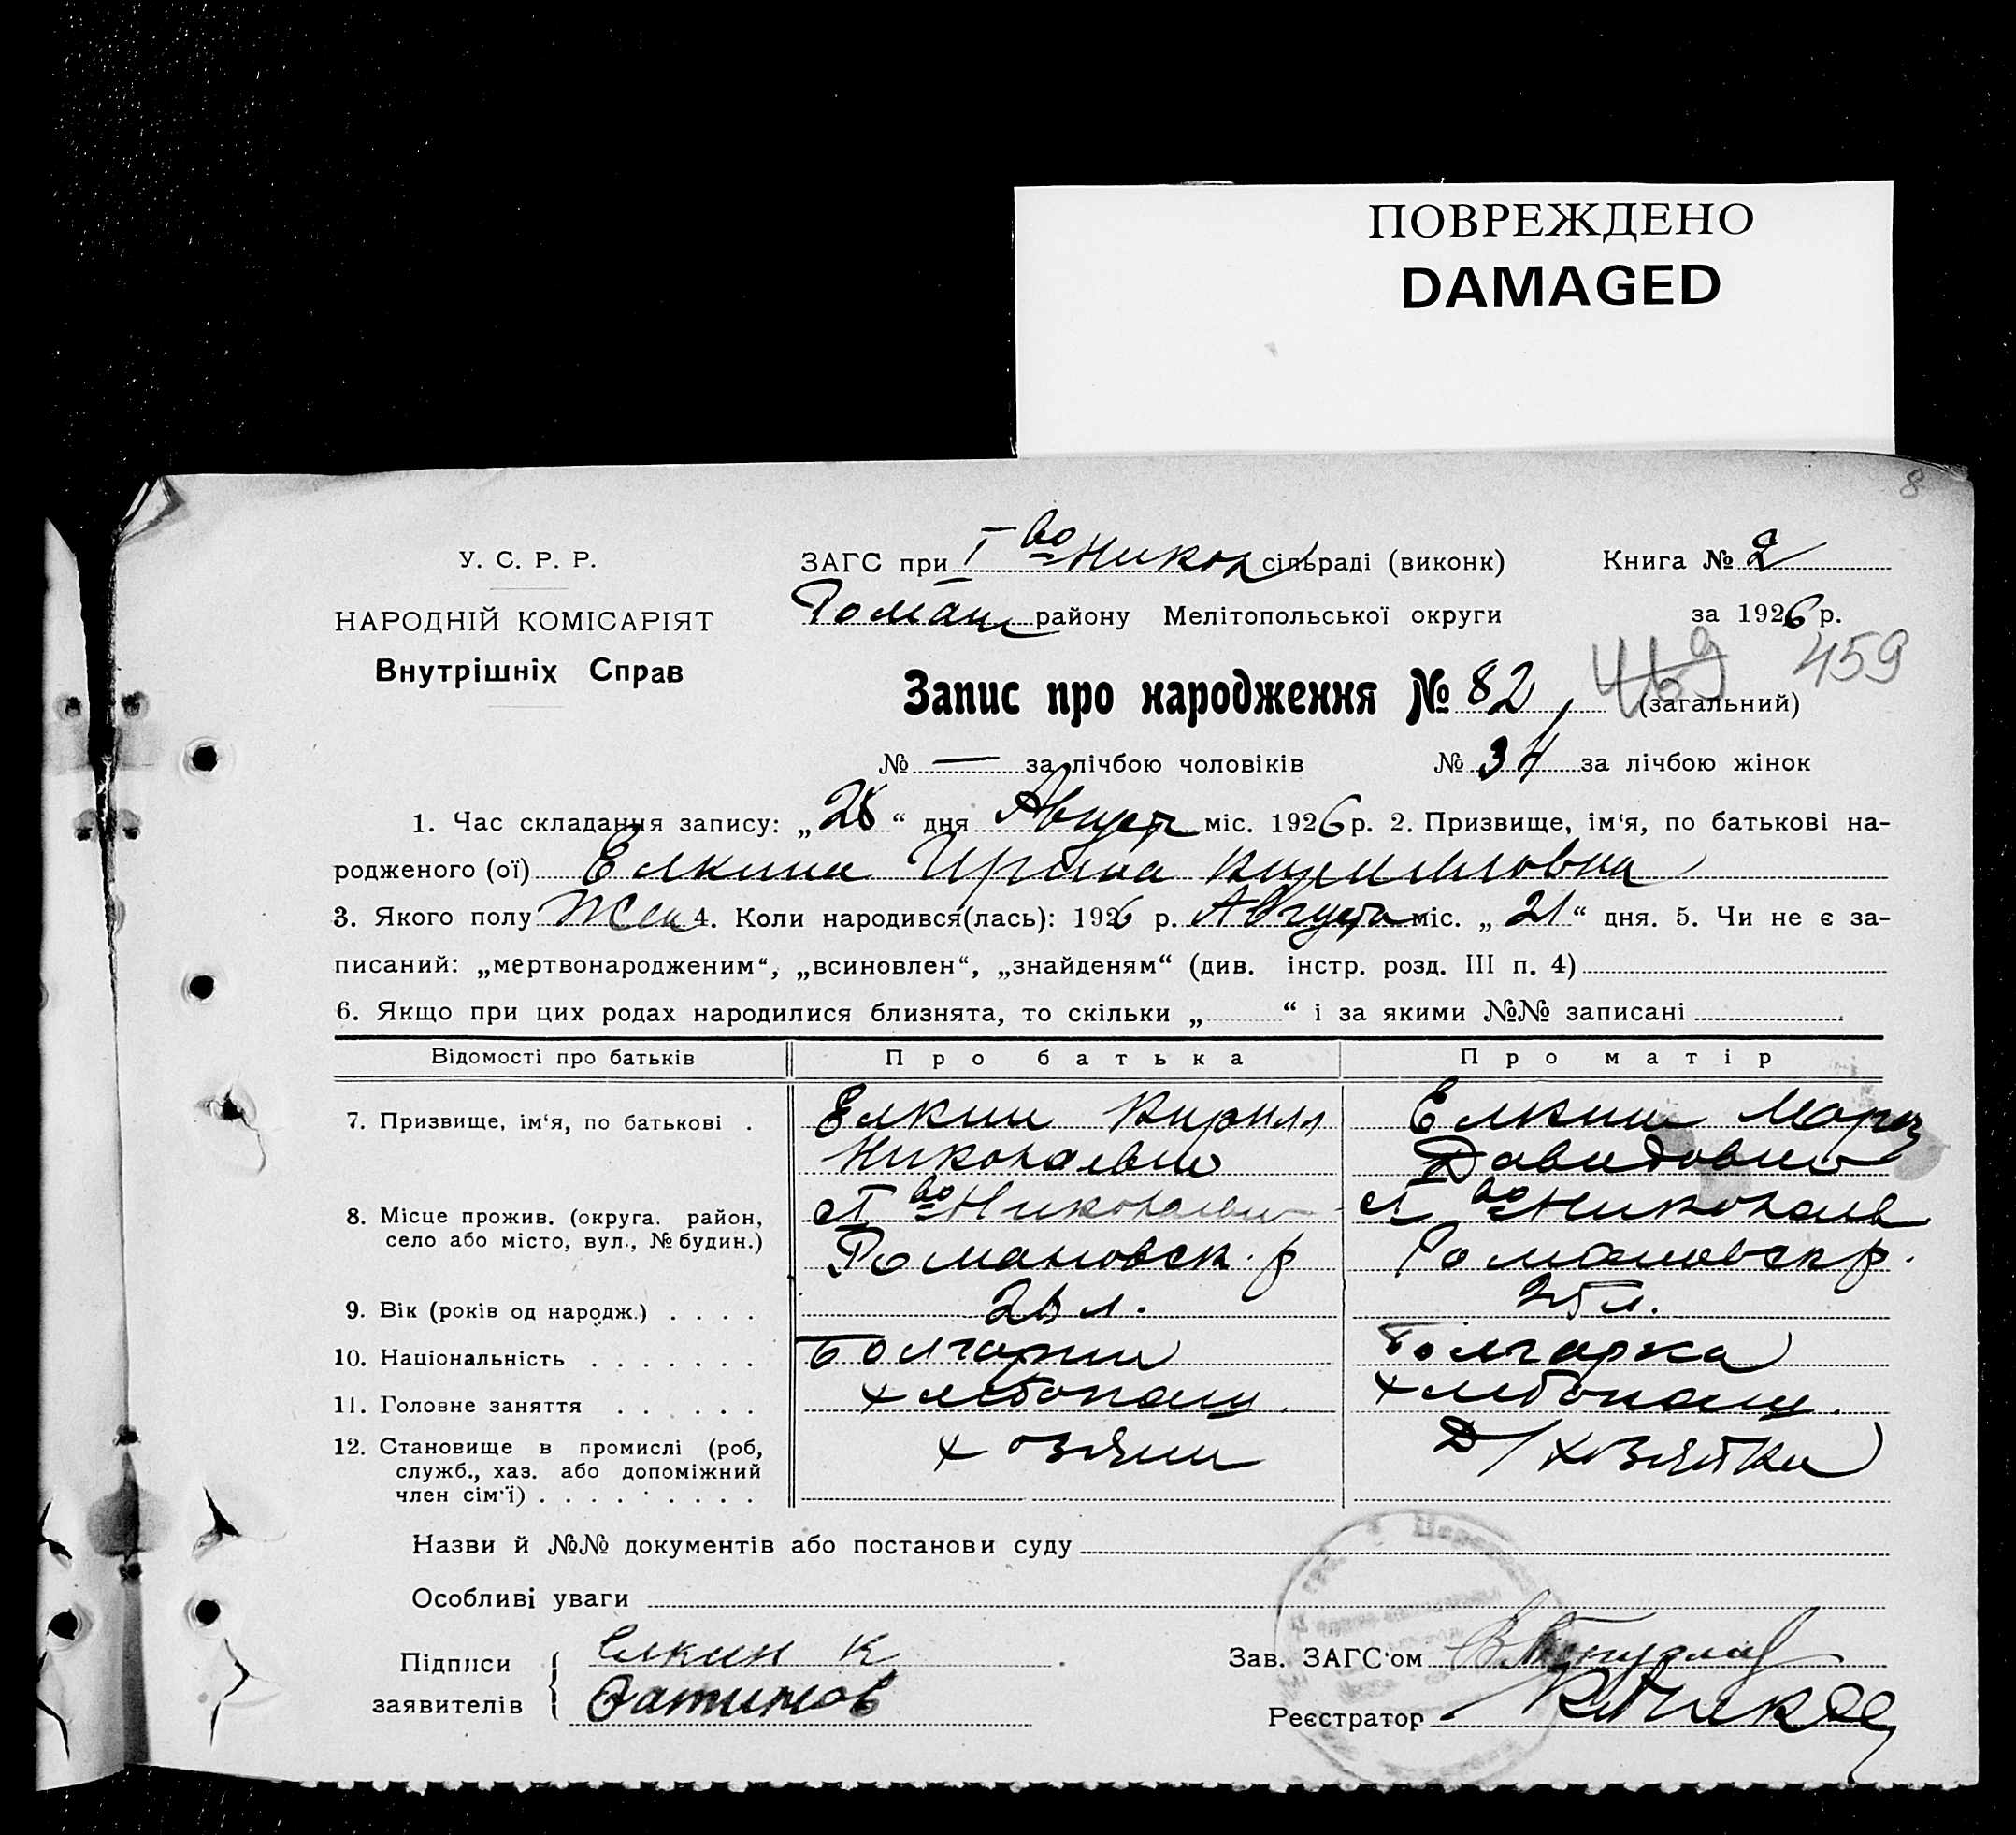 ПОВРЕЖДЕНО
DAMAGED
8
У. С. Р. Р.
НАРОДНІЙ КОМІСАРІЯТ
Внутрішніх Справ
ЗАГС при І во Никол сільраді (виконк)
Книга № 2
Роман району Мелітопольської округи
за 1926 р.
459
Запис про народження № 82 (загальний)
№ — за лічбою чоловіків № 34 за лічбою жінок
1. Час складання запису: „28“ дня Август міс. 1926 р. 2. Призвище, ім‘я, по батькові на-
родженого (ої) Елкина Ирина Кирилловна
3. Якого полу Жен 4. Коли народився(лась): 1926 р. Августа міс. „21“ дня. 5. Чи не є за-
писаний: „мертвонародженим“, „всиновлен“, „знайденям“ (див. інстр. розд. III п. 4)
6. Якщо при цих родах народилися близнята, то скільки „ “ і за якими №№ записані
Відомості про батьків Про батька Про матір
7. Призвище, ім‘я, по батькові . Елкин Кирилл Елкин Мария
Николаевич Давидовна
8. Місце прожив. (округа. район, І во Николаевка І во Николаев
село або місто, вул., № будин.) Романовск. р Романовск р.
9. Вік (років од народж.) . . . . л. 25 л.
10. Національність . . . . . . . Болгарин Болгарка
11. Головне заняття . . . . . . хлебопаш. хлебопаш.
12. Становище в промислі (роб, хозяин Д/хозяйка
служб., хаз. або допоміжний
член сім‘ї) . . . . . . . . .
Назви й №№ документів або постанови суду
Особливі уваги
Підписи Елкин К
заявителів
Зав. ЗАГС‘ом
Реєстратор